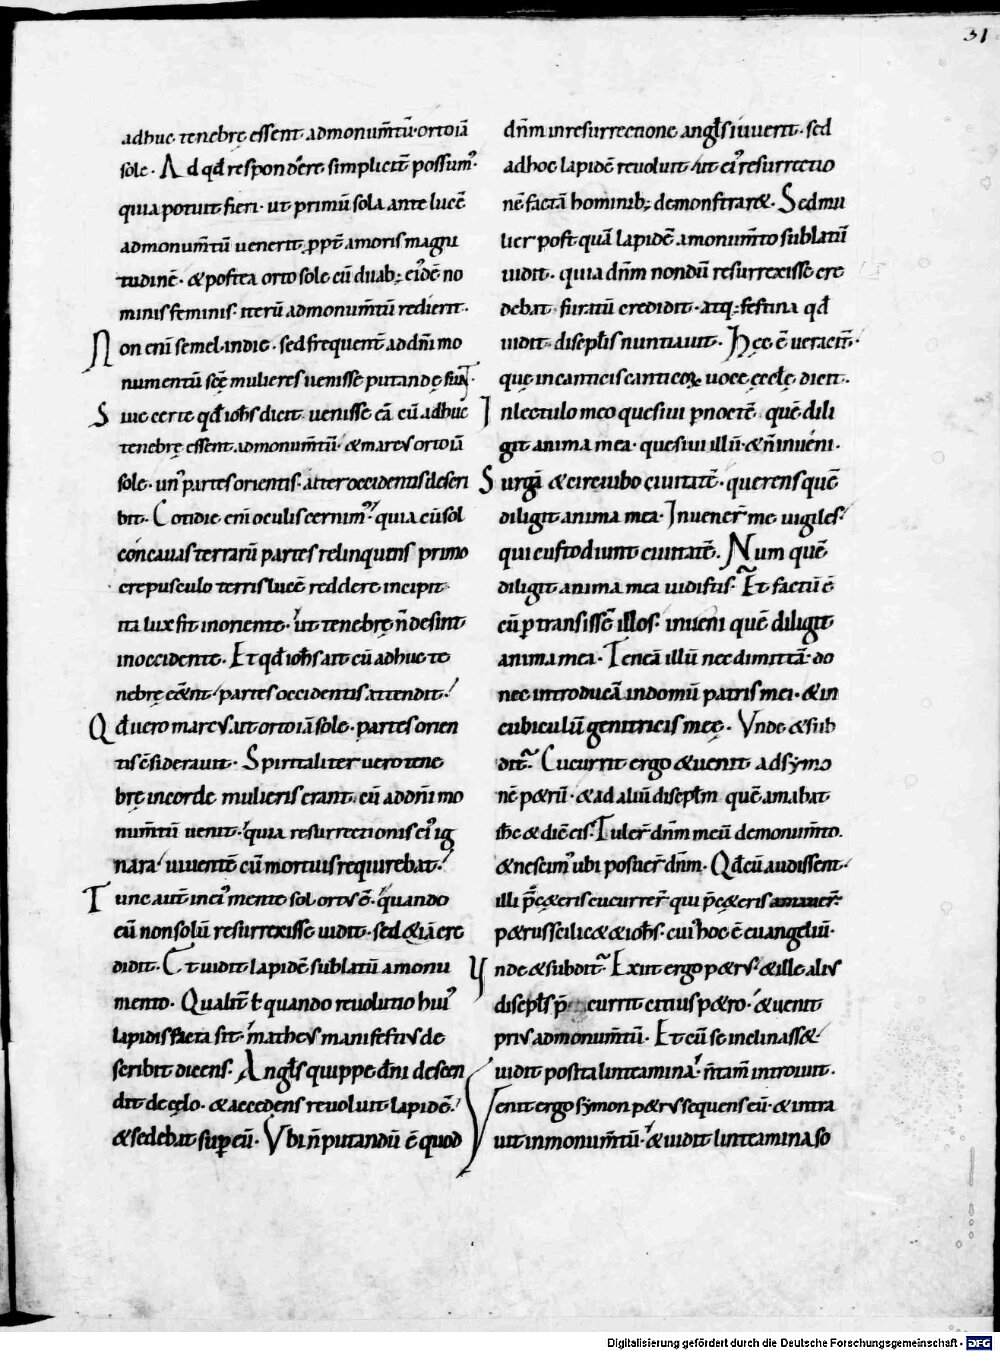 31
adhuc tenebrę essent admonum̄tū· orto iā
sole· Ad qđ respondere simplicit̄ possum᷒·
quia potuit fieri· ut primū sola ante lucē
admonum̄tū uenerit ꝓpt̄ amoris magni
tudinē· & postea orto sole cū duab; ei᷒dē no
minis feminis· iterū admonum̄tū redierit·
Non eni semel indie· sed frequent̄ ad dn̄i mo
numentū scē mulieres uenisse putandę sunt·
Siue certe qđ ioħs dicit uenisse eā cū adhuc
tenebrę essent admonum̄tū· & marcus orto iā
sole· un᷒ partes orientis· alter occidentis descri
bit· Cotidie eni oculis cernim᷒· quia cū sol
concauas terrarū partes relinquens primo
crepusculo terris lucē reddere incipit
ita lux fit inoriente· ut tenebrę n̄ desint
inoccidente· Et qđ ioħs ait cū adhuc te
nebrę eēnt· partes occidentis attendit·
Qđ uero marcus ait orto iā sole· partes orien
tis c̄siderauit· Spiritaliter uero tene
brę incorde mulieris erant· cū ad dn̄i mo
num̄tū uenit· quia resurrectionis ei᷒ ig
nara· uiuentē cū mortuis requirebat·
Tunc aut̄ in ei᷒ mente sol ortus ē· quando
eū nonsolū resurrexisse uidit· sed & iā cre
didit· Et uidit lapidē sublatū amonu
mento· Qualit̄ ł quando reuolutio hui᷒
lapidis facta sit· matheus manifestius de
scribit dicens· Angł̄s quippe dn̄i descen
dit decęlo· & accedens reuoluit lapidē·
& sedebat suꝑ eū· Vbi n̄ putandū ē quod
dn̄m inresurrectione angł̄s iuuerit· sed
adhoc lapidē reuoluit· ut ei᷒ resurrectio
nē factā hominib; demonstrar&· Sed mu
lier postquā lapidē amonum̄to sublatū
uidit· quia dn̄m nondū resurrexisse cre
debat· furatū credidit· atq; festina qđ
uidit discipł̄is nuntiauit· Hec ē ueracit̄·
quę incanticis canticoꝝ uoce ęccłę dicit·
Inlectulo meo quesiui ꝑnoctē quē dili
git anima mea· quesiui illū· & n̄ inueni·
Surgā & circuibo ciuitatē· querens quē
diligit anima mea· Inuener̄ me uigiles·
qui custodiunt ciuitatē· Num quē
diligit anima mea uidistis· Et factū ē
cū ꝑtransissē illos· inueni quē diligit
anima mea· Teneā illū nec dimittā· do
nec introducā indomū patris mei· & in
cubiculū genitricis meę· Vnde & sub
dit̄· Cucurrit ergo & uenit adsymo
nē p&rū· & ad aliū discipł̄m quē amabat
iħc & dic̄ eis· Tuler̄ dn̄m meū demonum̄to·
& nescim᷒ ubi posuer̄ dn̄m· Qđ cū audissent
illi p̄c&eris cucurrer̄ qui p̄c&eris amauer̄·
p&rus scilic& & ioħs· cui᷒ hoc ē euangeliū·
Vnde & subdit̄· Exiit ergo p&rus· & ille alius
discipł̄s p̄ cucurrit citius p&ro· & uenit
prius admonum̄tū· Et cū se inclinass&
uidit posita linteamina· n̄ tam̄ introiuit·
Venit ergo symon p&rus sequens eū· & intra
uit inmonum̄tū· & uidit linteamina so
Digitalisierung gefördert durch die Deutsche Forschungsgemeinschaft - DFG